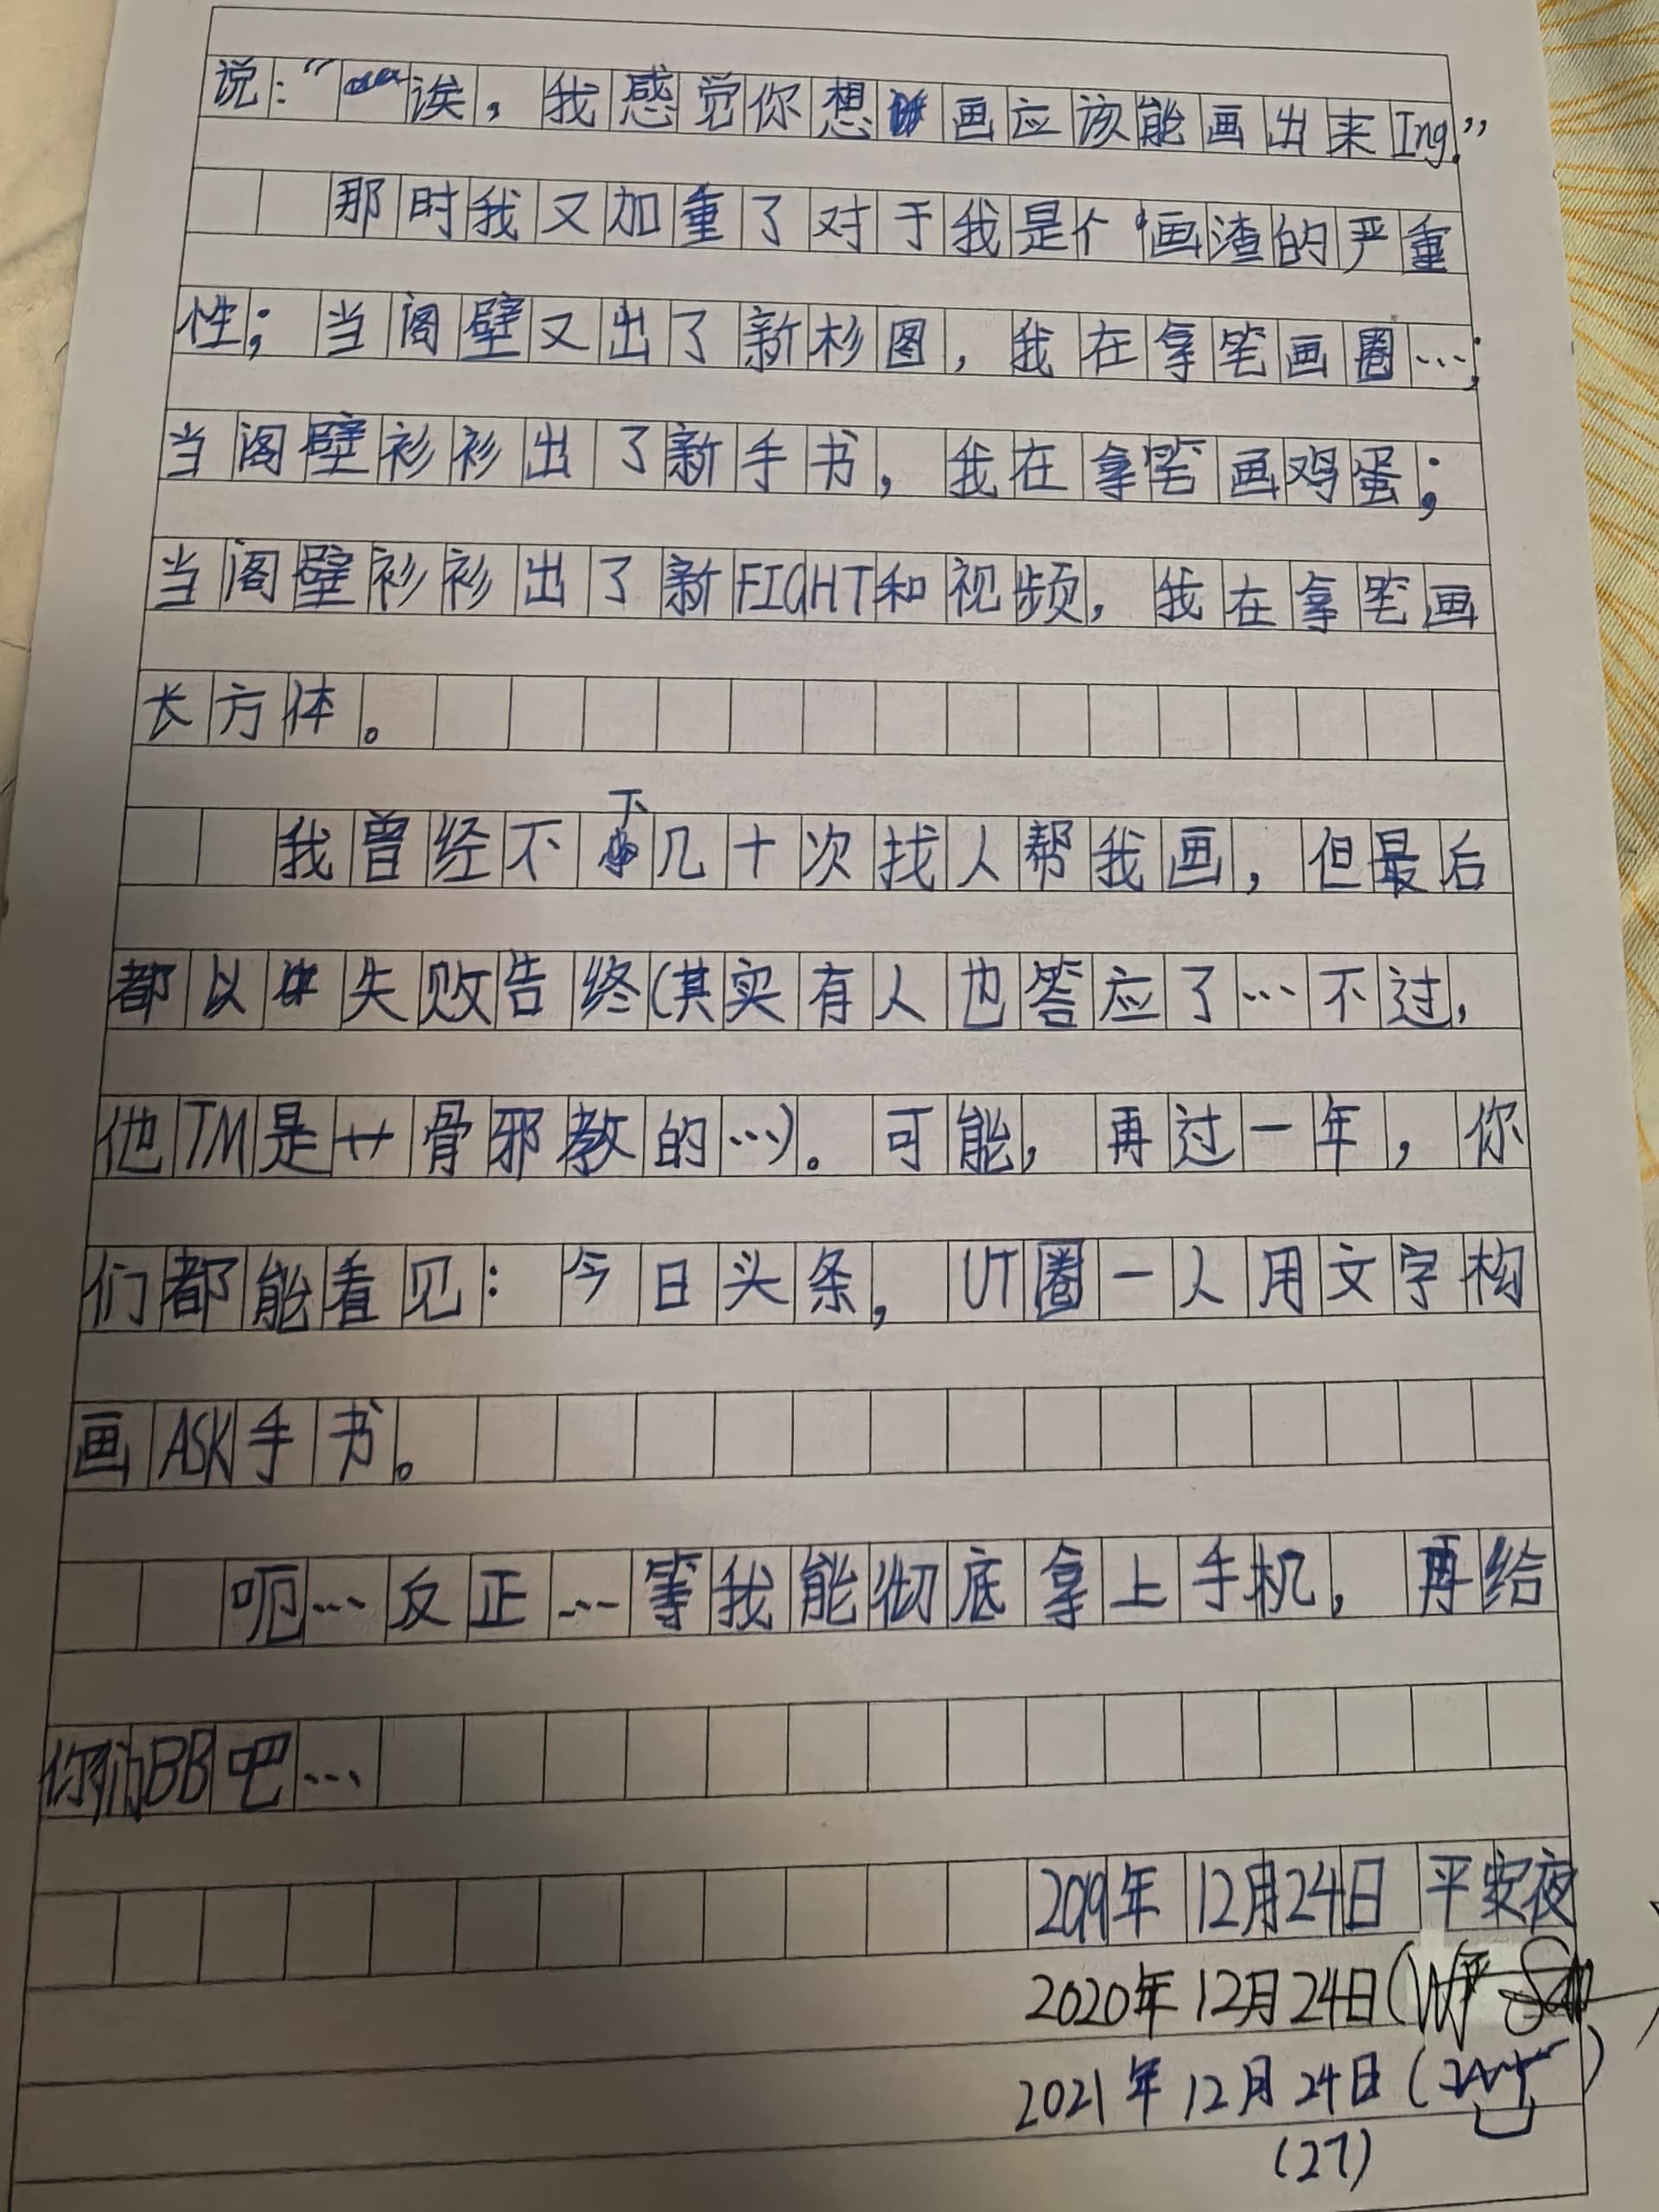 说:“诶,我感觉你想画应该能画出来Ing.”
那时我又加重了对于我是个“画渣的严重
性;当阁壁又出了新杉图,我在拿笔画圈…;
当阁壁衫衫出了新手书,我在拿笔画鸡蛋;
当阁壁衫衫出了新FIGHT和视频,我在拿笔画
长方体。
我曾经不下几十次找人帮我画,但最后
都以失败告终(其实有人也答应了…不过,
他TM是骨邪教的…)。可能,再过一年,你
们都能看见:今日头条,UT圈一人用文字构
画ASK手书。
呃…反正…等我能彻底拿上手机,再给
你们BB吧…
2019年12月24日 平安夜
2020年12月24日(
2021年12月24日(
(27)